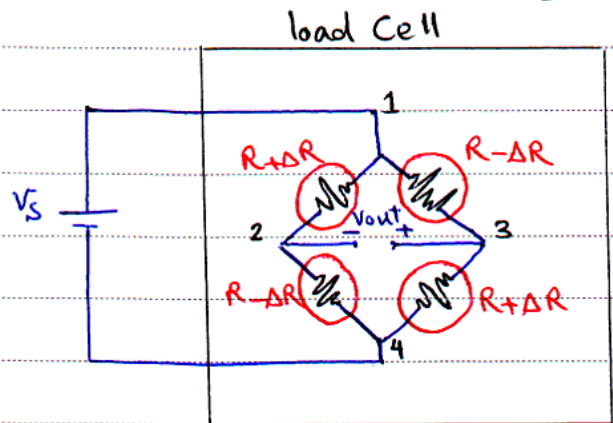 load Cell
1
R+ΔR
R-ΔR
Vs
2
- Vout +
3
R-ΔR
R+ΔR
4